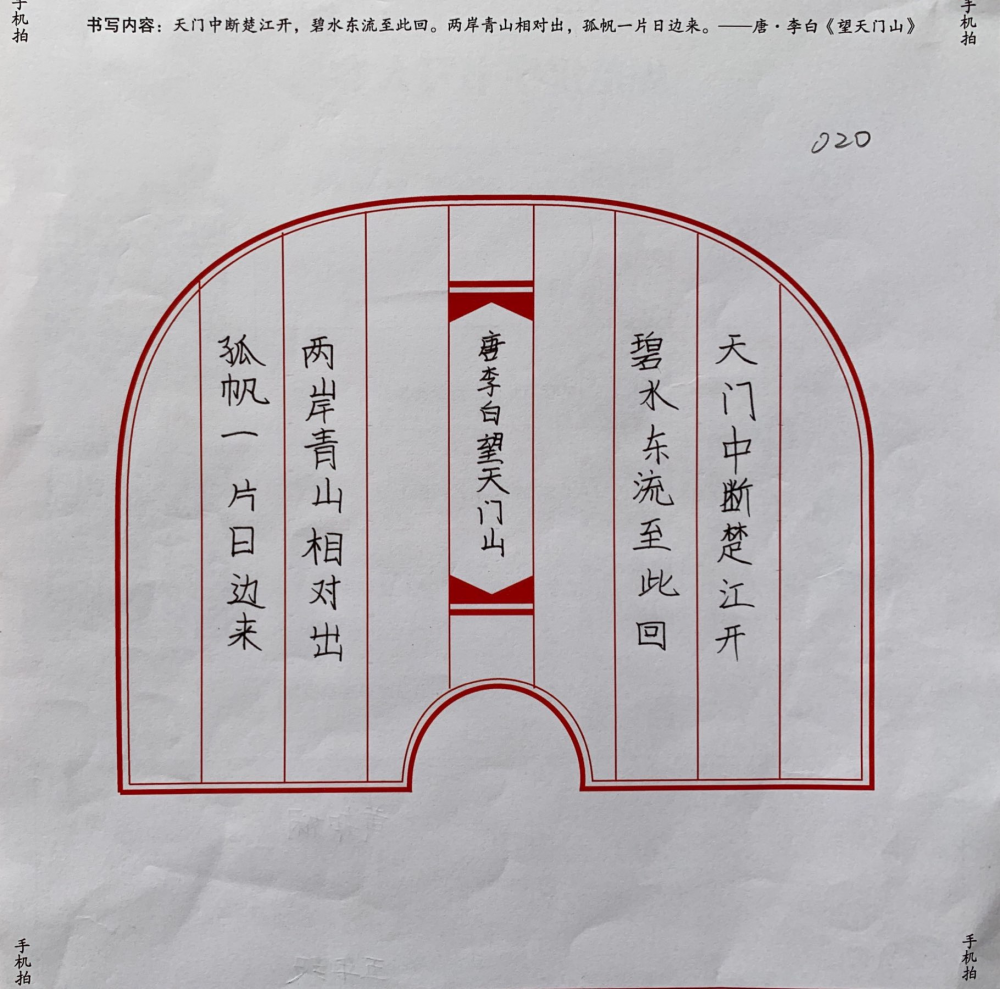 手机拍
书写内容：天门中断楚江开，碧水东流至此回。两岸青山相对出，孤帆一片日边来。——唐·李白《望天门山》
手机拍
020
天门中断楚江开
碧水东流至此回
唐李白望天门山
两岸青山相对出
孤帆一片日边来
手机拍
手机拍